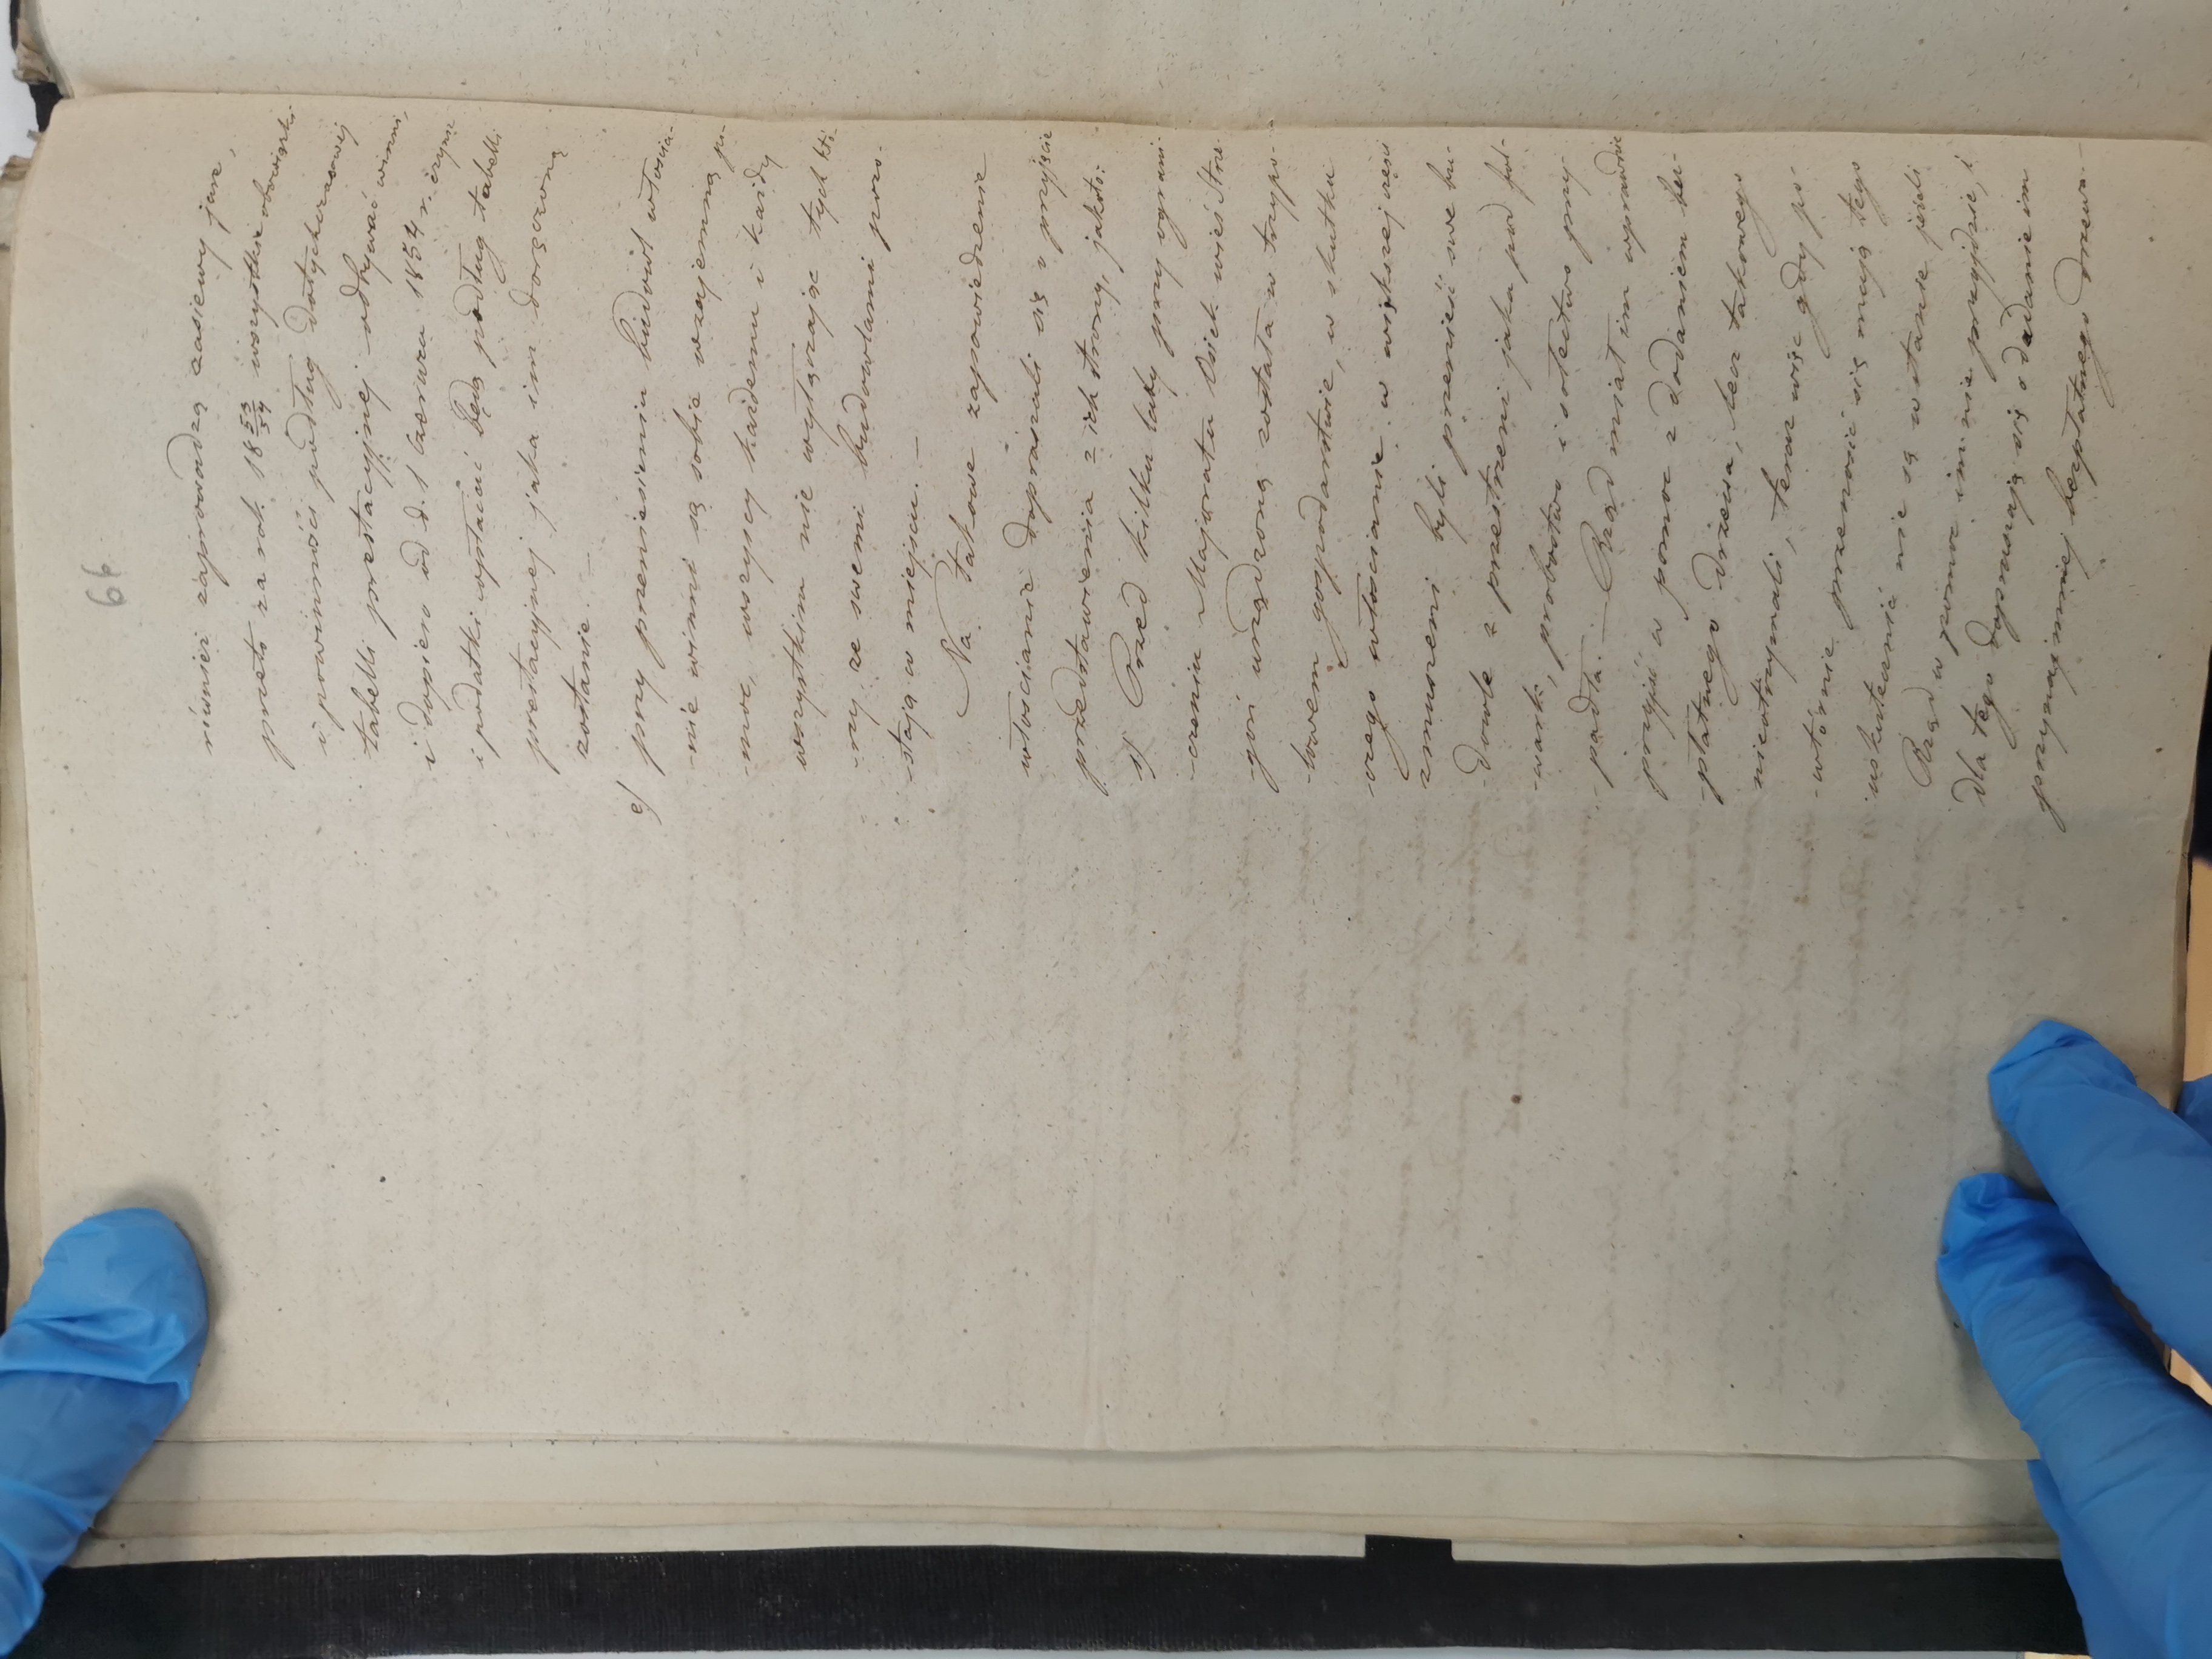 66
również zaprowadzą zasiewy jare,
przeto za rok 18 53/54 wszystkie obowiązki
i powinności podług dotychczasowej
tabelli prestacyjnej odbywać winni,
i dopiero od d. 1 Czerwca 1854 r. czynsz
i podatki opłacać będą podług tabelli
prestacyjnej jaka im doręczoną
zostanie. —
e) przy przeniesieniu budowli włościa-
-nie winni są sobie wzajemną po-
-moc, wszyscy każdemu i każdy
wszystkim nie wyłączając tych któ-
-rzy ze swemi budowlami pozo-
-stają w miejscu. —
Na takowe zapowiedzenie
włościanie dopraszali się o przyjęcie
przedstawienia z ich strony, jakoto:
1) Przed kilku laty przy ograni-
-czeniu Majoratu Osiek wieś Strze-
-gom urządzoną została w trzypo-
-lowem gospodarstwie, w skutku
-czego włościanie w większej części
zmuszeni byli przenieść swe bu-
-dowle z przestrzeni jaka pod fol-
-wark, probostwo i sołectwo przy-
-padła. — Rząd miał im wprawdzie
przyjść w pomoc z dodaniem bez-
-płatnego drzewa, lecz takowego
nieotrzymali, teraz więc gdy po-
-wtórnie przenosić się mają tego
uskutecznić nie są w stanie jeżeli
Rząd w pomoc im nie przyjdzie, i
dla tego dopraszają się o dodanie im
przynajmniej bezpłatnego drzewa —